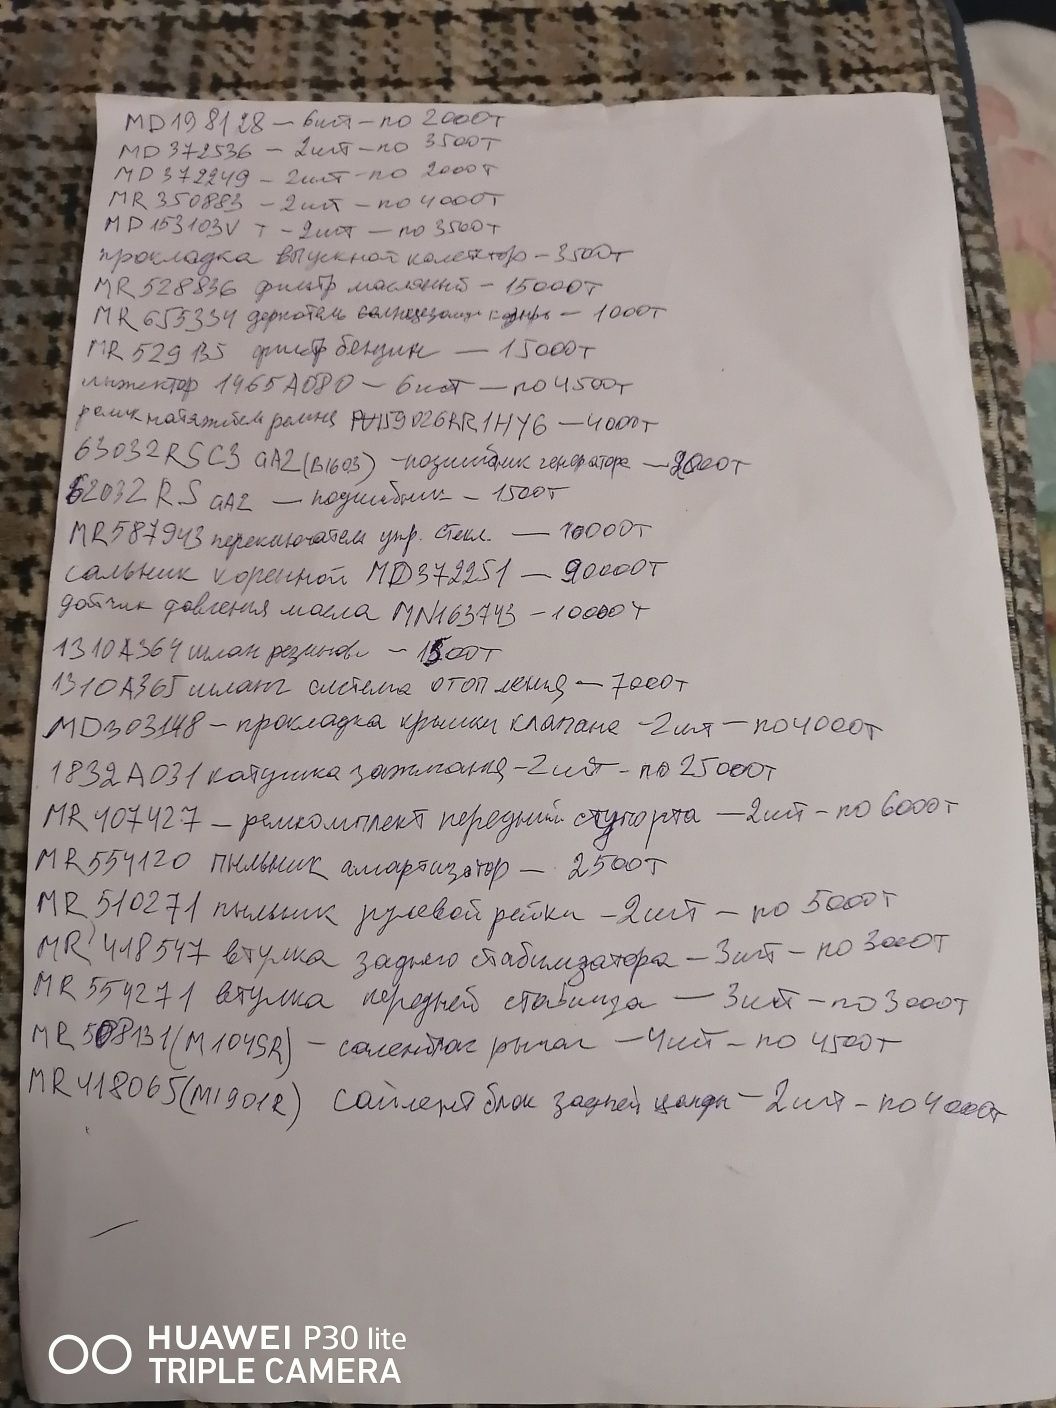 MD198128 – 6шт – по 2000т
MD372536 – 2шт – по 3500т
MD372249 – 2шт – по 2000т
MR350883 – 2шт – по 4000т
MD153103V т – 2шт – по 3500т
прокладка выпускной колектор – 3500т
MR528836 фильтр масляный – 15000т
MR655334 держатель – 1000т
MR529135 фильтр бензин – 15000т
инжектор 1465A080 – 6шт – по 4500т
ролик натяжителя ремня – 4000т
63032RSC3 GA2 (B1603) – генератора – 2000т
62032RS GA2 – подшибник – 1500т
MR587943 переключатель упр. стекл. – 10000т
сальник коренной MD372251 – 20000т
датчик давления масла MN163743 – 10000т
1310A364 шлан резинов – 1500т
1310A365 шланг система отопления – 7000т
MD303148 – прокладка крышки клапана – 2шт – по 4000т
1832A031 катушка зажигания – 2шт – по 25000т
MR407427 – ремкомплект передний суппорта – 2шт – по 6000т
MR554120 пыльник амартизатор – 2500т
MR510271 пыльник рулевой рейки – 2шт – по 5000т
MR418547 втулка заднего стабилизатора – 3шт – по 3000т
MR554271 втулка передней – 3шт – по 3000т
MR508131 (M104SR) – рычаг – 4шт – по 4500т
MR418065 (M1901R) сайлент блок задней цапфы – 2шт – по 4000т
HUAWEI P30 lite
TRIPLE CAMERA